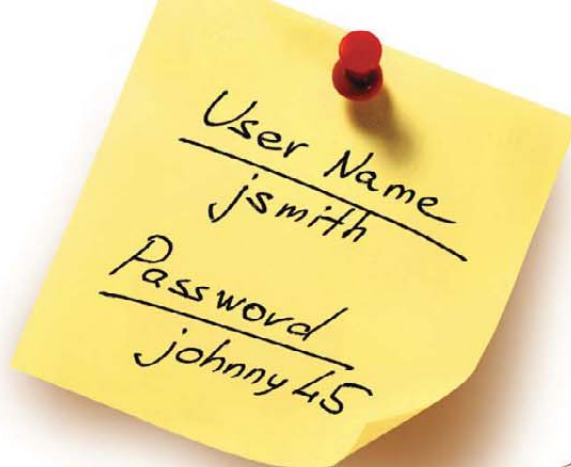 User Name
jsmith
Password
johnny45